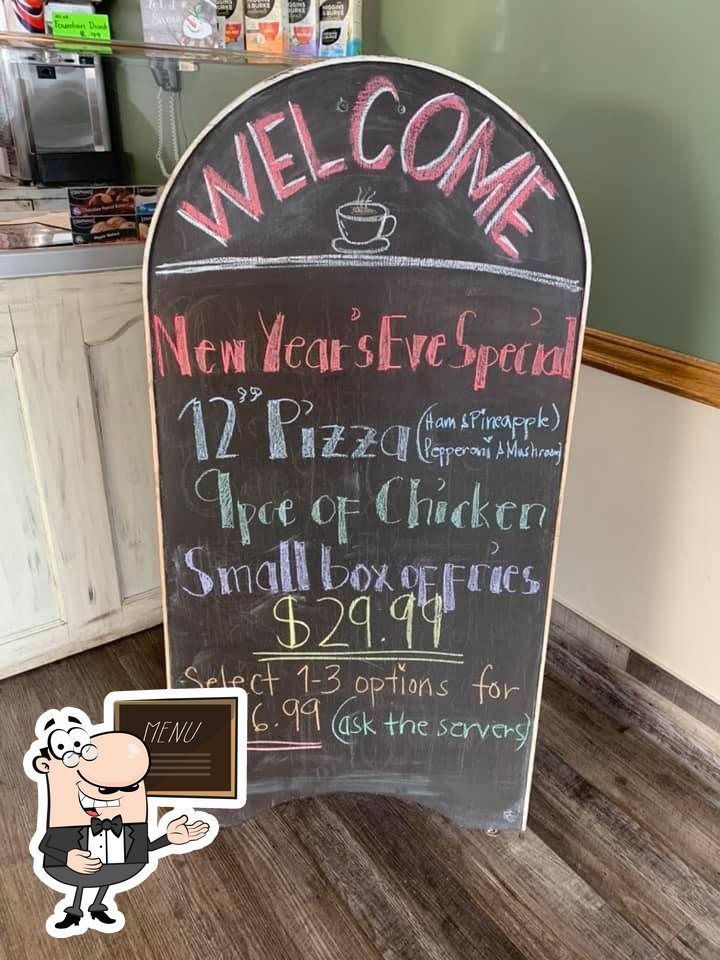 Fountain Drink
$ .99
HIGGINS
& BURKE
HIGGINS
& BURKE
WELCOME
New Year's Eve Special
12" Pizza (Ham & Pineapple)
Pepperoni & Mushroom
9pce of Chicken
Small box of fries
$29.99
Select 1-3 options for
6.99 (ask the servers)
MENU